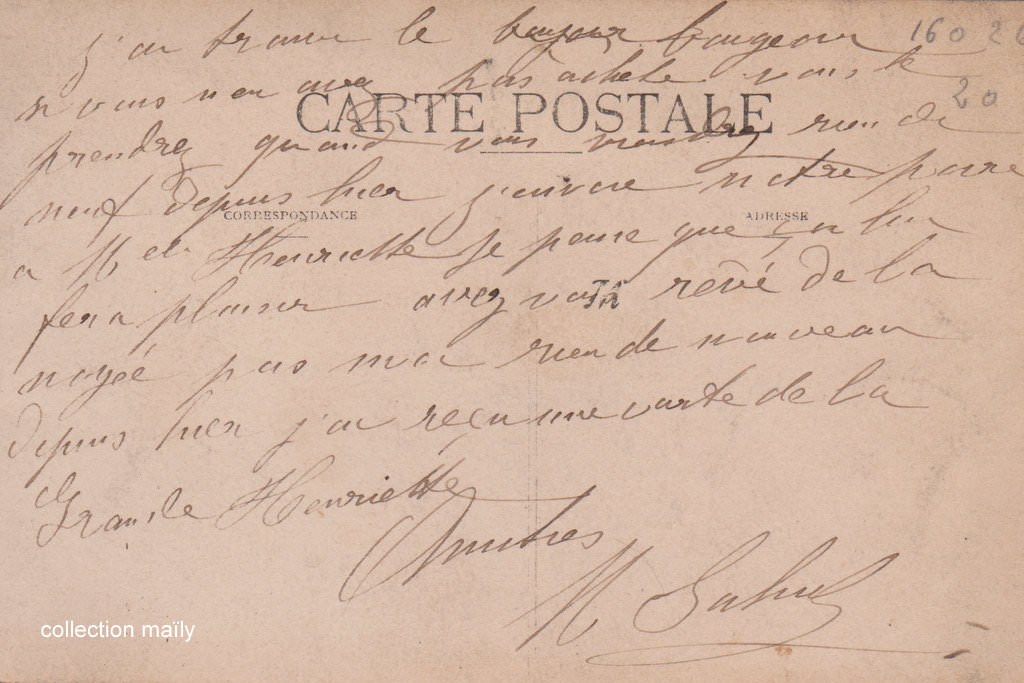 j'ai trouvé le bougeoir
16026
si vous n'en avez pas acheté vous le
20
CARTE POSTALE
prendrez quand vous voudrez rien de
neuf depuis hier j'envoie notre poire
CORRESPONDANCE
ADRESSE
a Melle Henriette je pense que ça lui
fera plaisir avez vous rêvé de la
noyée pas moi rien de nouveau
depuis hier j'ai reçu une carte de la
Grande Henriette
Amitiés
M
collection maïly